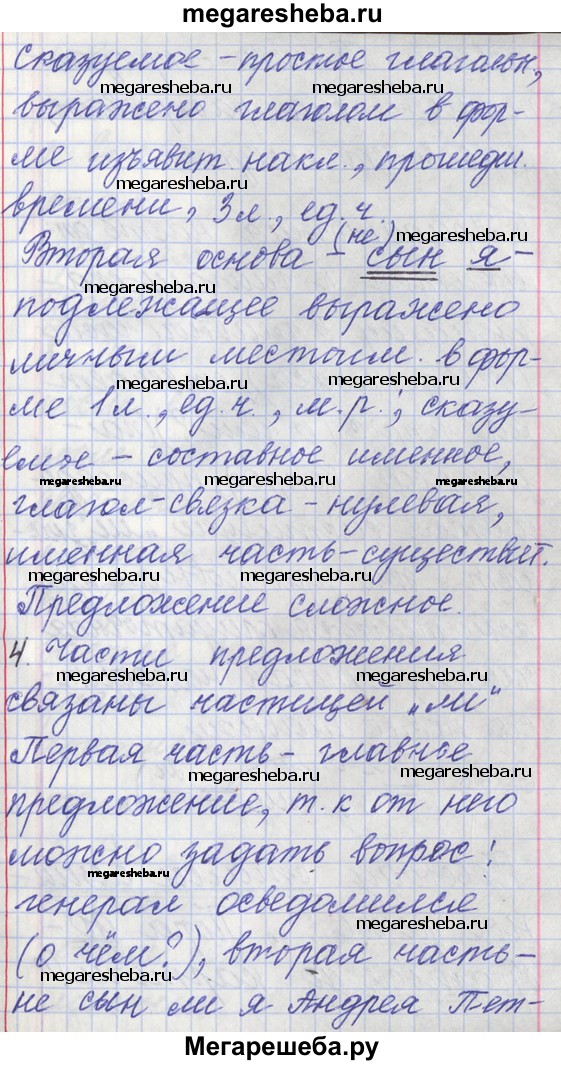 megaresheba.ru
сказуемое - простое глагольн.,
megaresheba.ru megaresheba.ru
выражено глаголом в фор-
ме изъявит. накл., прошедш.
megaresheba.ru megaresheba.ru
времени, 3 л., ед. ч.
(не) megaresheba.ru
Вторая основа - сын я -
megaresheba.ru
подлежащее выражено
megaresheba.ru
личным местоим. в фор-
megaresheba.ru
ме 1 л., ед. ч., м. р.; сказу-
megaresheba.ru
емое - составное именное,
megaresheba.ru megaresheba.ru
глагол-связка - нулевая,
именная часть - существит.
megaresheba.ru megaresheba.ru
Предложение сложное.
4. Части предложения
megaresheba.ru megaresheba.ru
связаны частицей "ли"
Первая часть - главное
megaresheba.ru megaresheba.ru
предложение, т. к от него
можно задать вопрос:
megaresheba.ru megaresheba.ru
генерал осведомился
megaresheba.ru
(о чём?), вторая часть -
megaresheba.ru megaresheba.ru
не сын ли я Андрея Пет-
Мегарешеба.ру